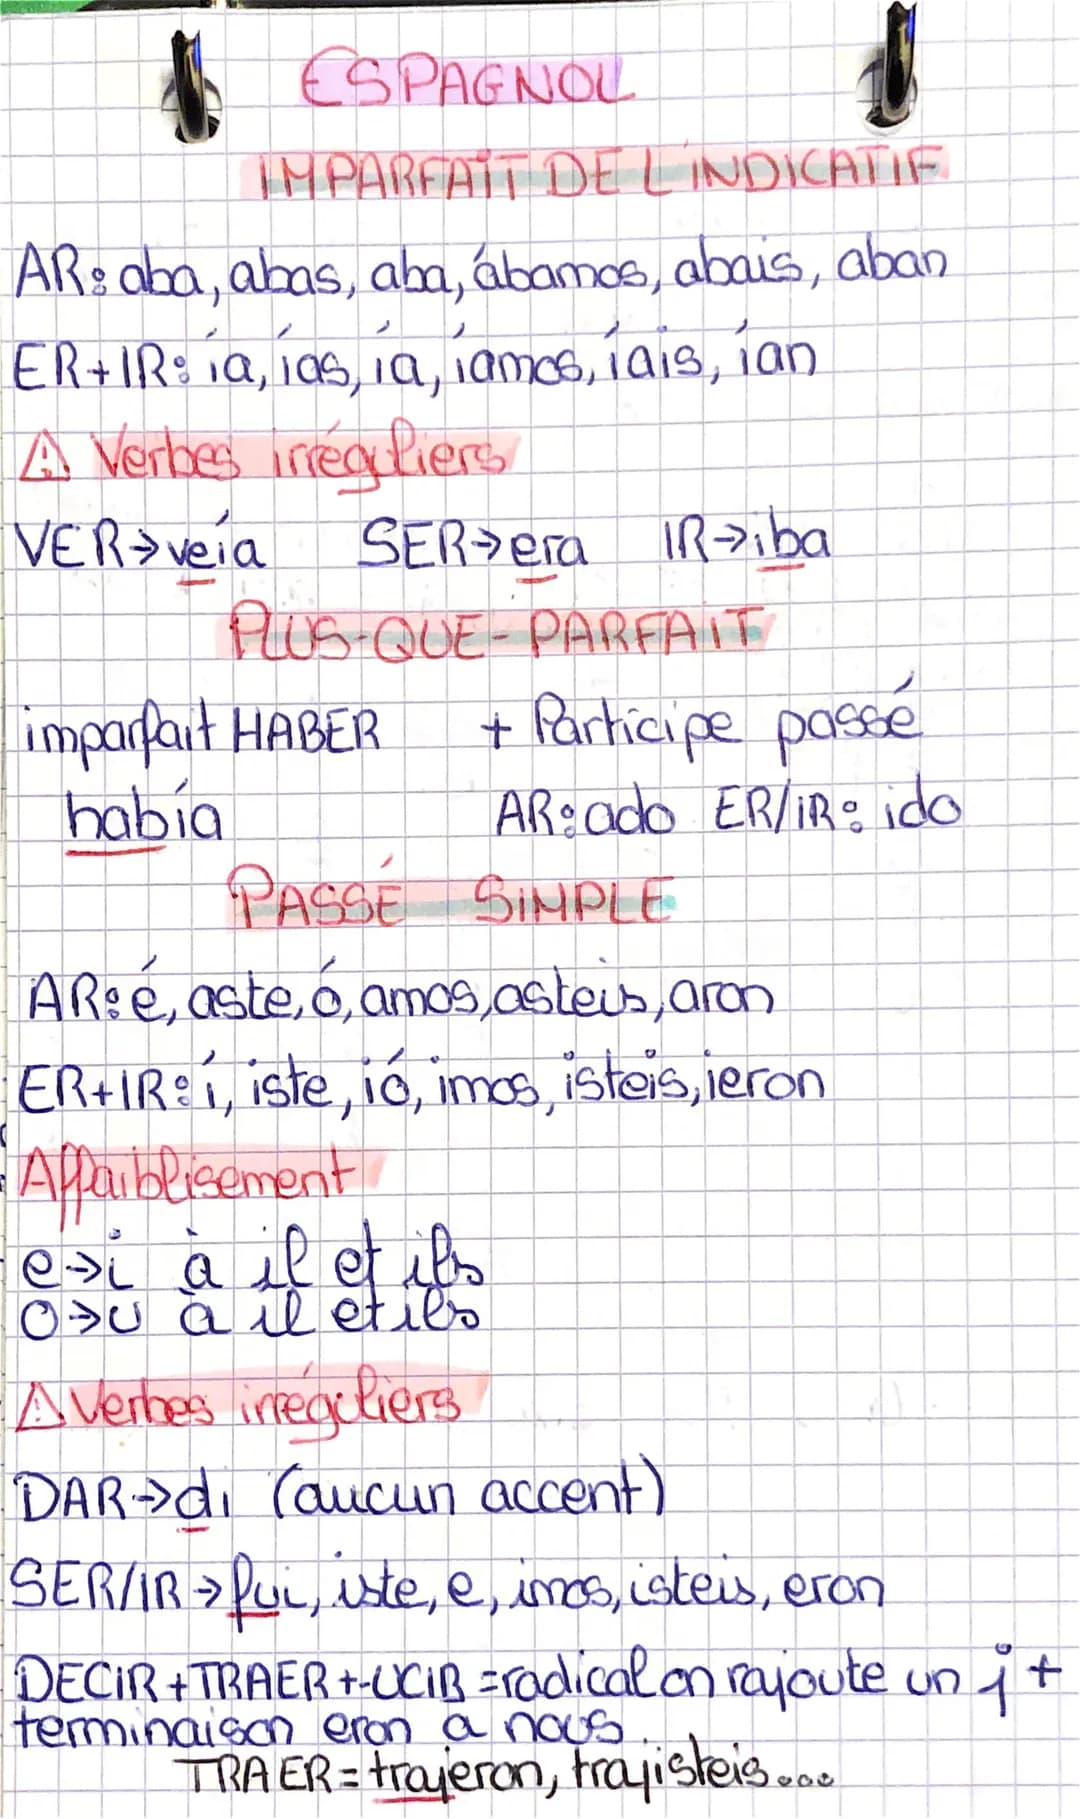 ESPAGNOL
IMPARFAIT DE L'INDICATIF
AR: aba, abas, aba, ábamos, abais, aban
ER+IR: ía, ías, ía, íamos, íais, ían
⚠ Verbes irréguliers
VER→veía SER→era IR→iba
PLUS-QUE-PARFAIT
imparfait HABER + Participe passé
había AR: ado ER/IR: ido
PASSÉ SIMPLE
AR: é, aste, ó, amos, asteis, aron
ER+IR: í, iste, ió, imos, isteis, ieron
Affaiblisement
e→i à il et ils
o→u à il et ils
⚠ Verbes irréguliers
DAR→di (aucun accent)
SER/IR→fui, iste, e, imos, isteis, eron
DECIR+TRAER+-UCIR=radical on rajoute un j +
terminaison eron a nous
TRAER=trajeron, trajisteis...